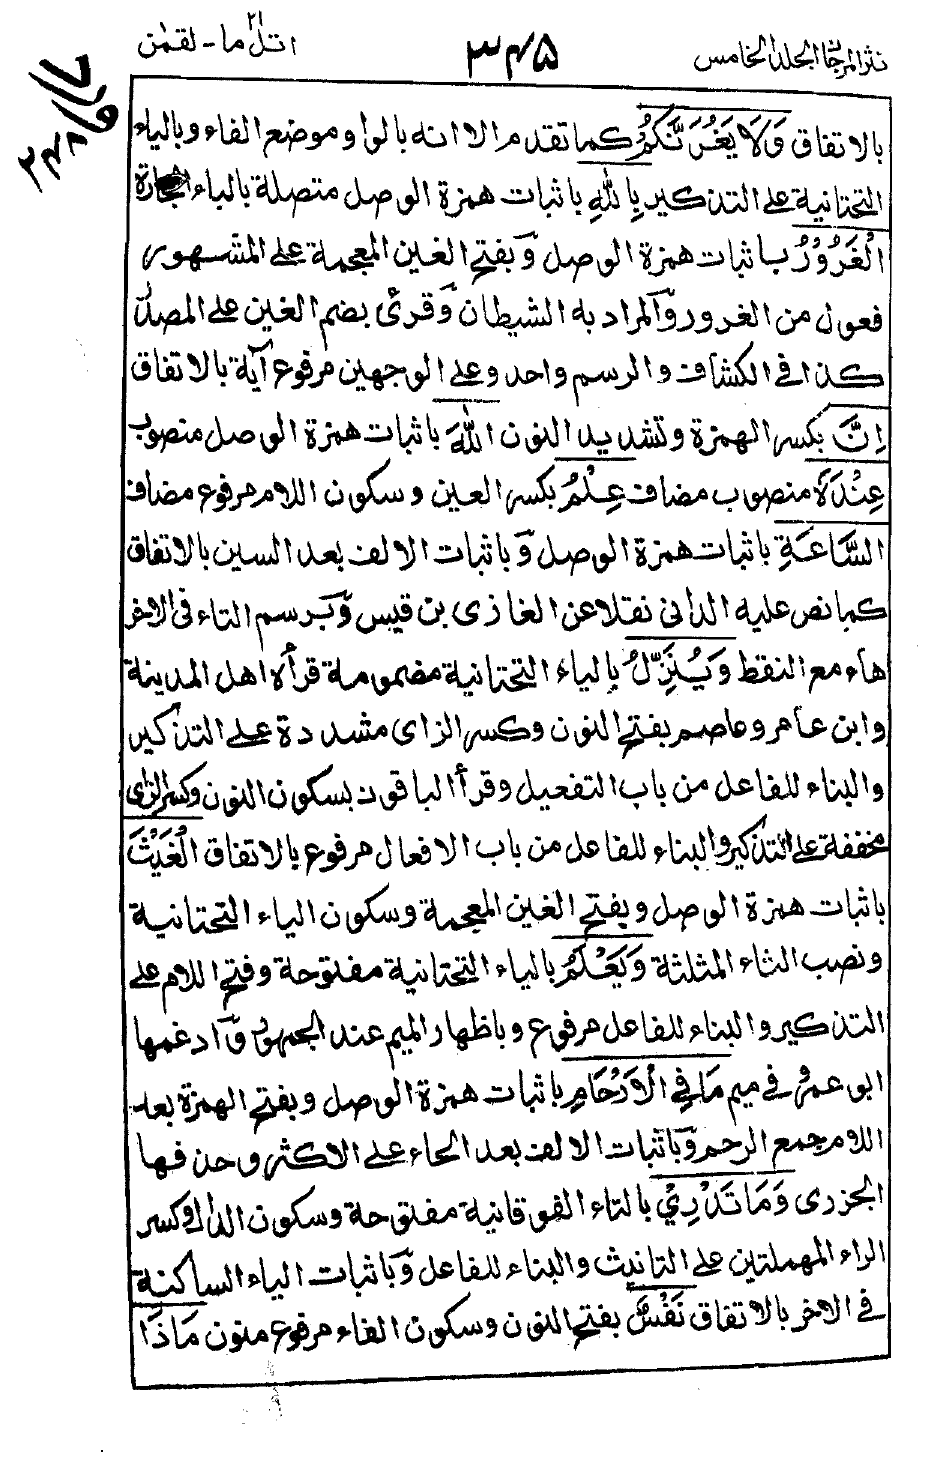 نثر المرجان المجلد الخامس
۳۴۵
اتل ما ۲۱ - لقمٰن
بالاتفاق وَلَا يَغُرَّنَّكُمْ كما تقدم الا انه بالواو موضع الفاء وبالياء
التحتانية على التذكير بِاللّٰهِ باثبات همزة الوصل متصلة بالباء الجارة
الْغَرُوْرُ باثبات همزة الوصل وَبفتح الغين المعجمة على المشهور
فعول من الغرور وَالمراد به الشيطان وَقرئ بضم الغين على المصدر
كذا فى الكشاف والرسم واحد وعلى الوجهين مرفوع آية بالاتفاق
اِنَّ بكسر الهمزة وتشديد النون اللّٰهَ باثبات همزة الوصل منصوب
عِنْدَهٗ منصوب مضاف عِلْمُ بكسر العين وسكون اللام مرفوع مضاف
السَّاعَةِ باثبات همزة الوصل وَباثبات الالف بعد السين بالاتفاق
كما نص عليه الدانى نقلا عن الغازى بن قيس وَبرسم التاء فى الاخر
هاء مع النقط وَيُنَزِّلُ بالياء التحتانية مضمومة قرأه اهل المدينة
وابن عامر وعاصم بفتح النون وكسر الزاى مشددة على التذكير
والبناء للفاعل من باب التفعيل وقرأ الباقون بسكون النون وكسر الزاى
مخففة على التذكير والبناء للفاعل من باب الافعال مرفوع بالاتفاق الْغَيْثَ
باثبات همزة الوصل وبفتح الغين المعجمة وسكون الياء التحتانية
ونصب الثاء المثلثة وَيَعْلَمُ بالياء التحتانية مفتوحة وفتح اللام على
التذكير والبناء للفاعل مرفوع وباظهار الميم عند الجمهور وَادغمها
ابو عمرو فى ميم مَا فِى الْاَرْحَامِ باثبات همزة الوصل وبفتح الهمزة بعد
اللام جمع الرحم وَباثبات الالف بعد الحاء على الاكثر وحذفها
الجزرى وَمَا تَدْرِىْ بالتاء الفوقانية مفتوحة وسكون الدال وكسر
الراء المهملتين على التانيث والبناء للفاعل وَباثبات الياء الساكنة
فى الاخر بالاتفاق نَفْسٌ بفتح النون وسكون الفاء مرفوع منون مَاذَا